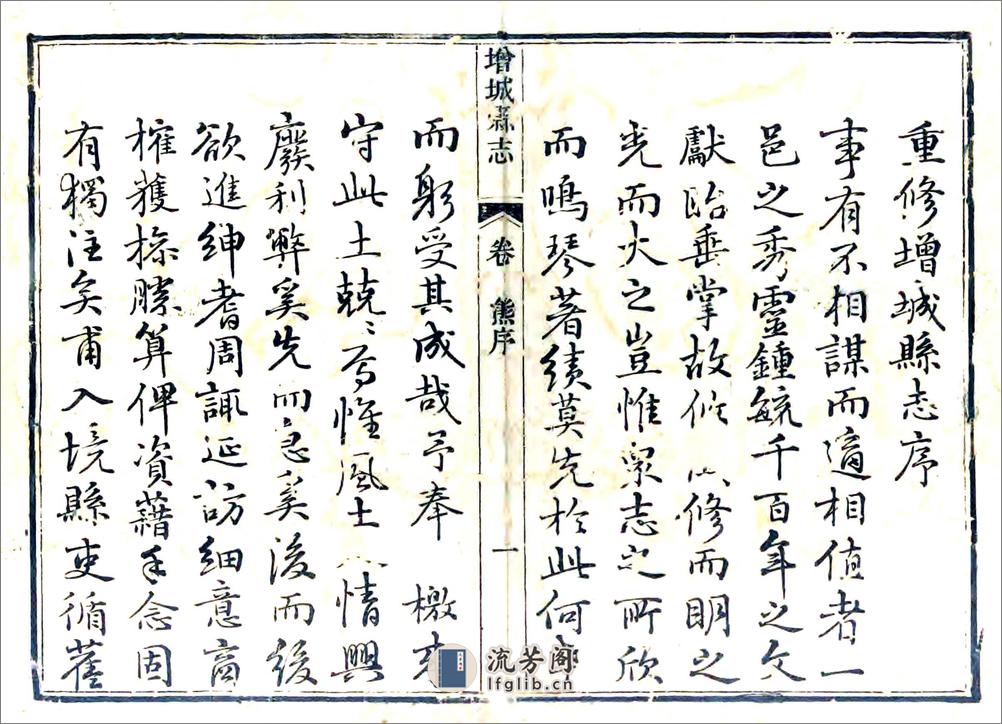 重修增城縣志序
事有不相謀而適相值者一
邑之秀靈鍾毓千百年之文
獻貽垂掌故修而明之
光而大之豈惟眾志之所欣
而鳴琴著績莫先於此何
增城縣志
卷
熊序
一
而躬受其成哉予奉檄來
守此土兢兢焉惟風土人情興
廢利弊奚先而急奚後而緩
欲進紳耆周諏延訪細意商
榷獲操勝算俾資藉手念固
有獨注矣甫入境縣吏循舊
流芳閣
lfglib.cn